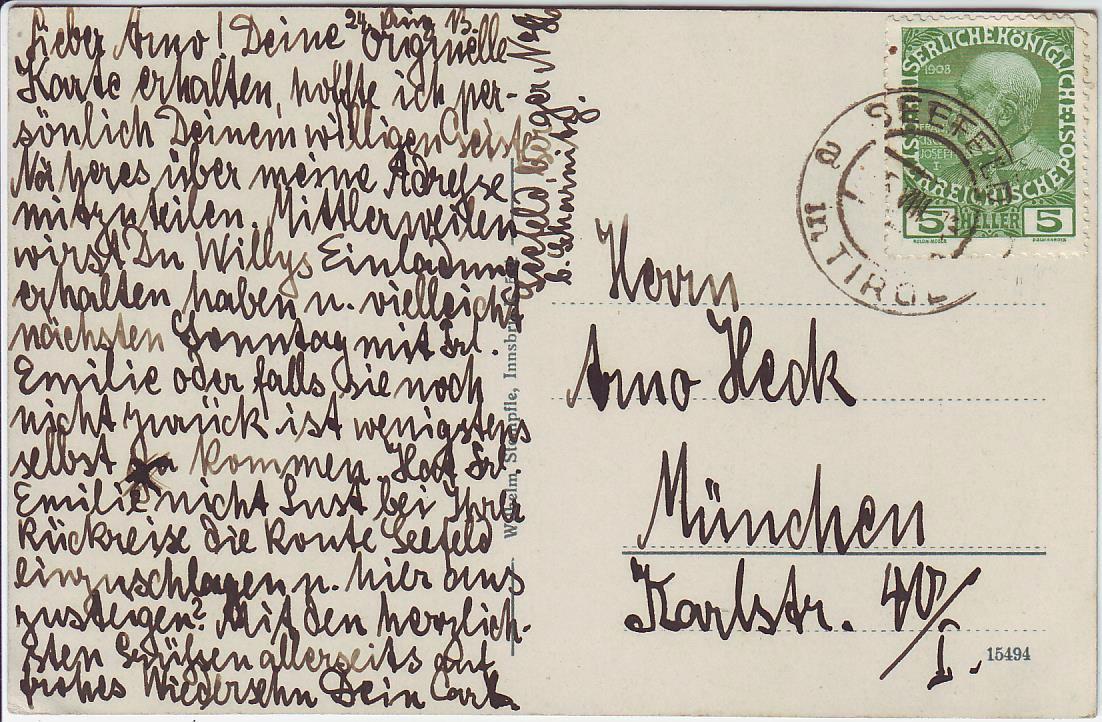 24. Aug. 13.
Lieber Arno! Deine originelle
Karte erhalten, hoffte ich per-
sönlich Deinem willigen Geiste
Näheres über meine Adresse
mitzuteilen. Mittlerweilen
wirst Du Willys Einladung
erhalten haben u. vielleicht
nächsten Sonntag mit Frl.
Emilie oder falls sie noch
nicht zurück ist wenigstens
selbst kommen. Hat Frl.
Emilie nicht Lust bei Ihrer
Rückreise die Route Seefeld
einzuschlagen u. hier aus
zusteigen? Mit den herzlich-
sten Grüssen allerseits auf
frohes Wiedersehn Dein Carl.
Seefeld
b. Scharnitz.
Wilhelm Stempfle, Innsbruck
KAISERLICHE KÖNIGLICHE ÖSTERREICHISCHE POST
1908
FRANZ JOSEPH I.
5 HELLER 5
SEEFELD
in TIROL
VIII
Herrn
Arno Heck
München
Karlstr. 40/
I.
15494